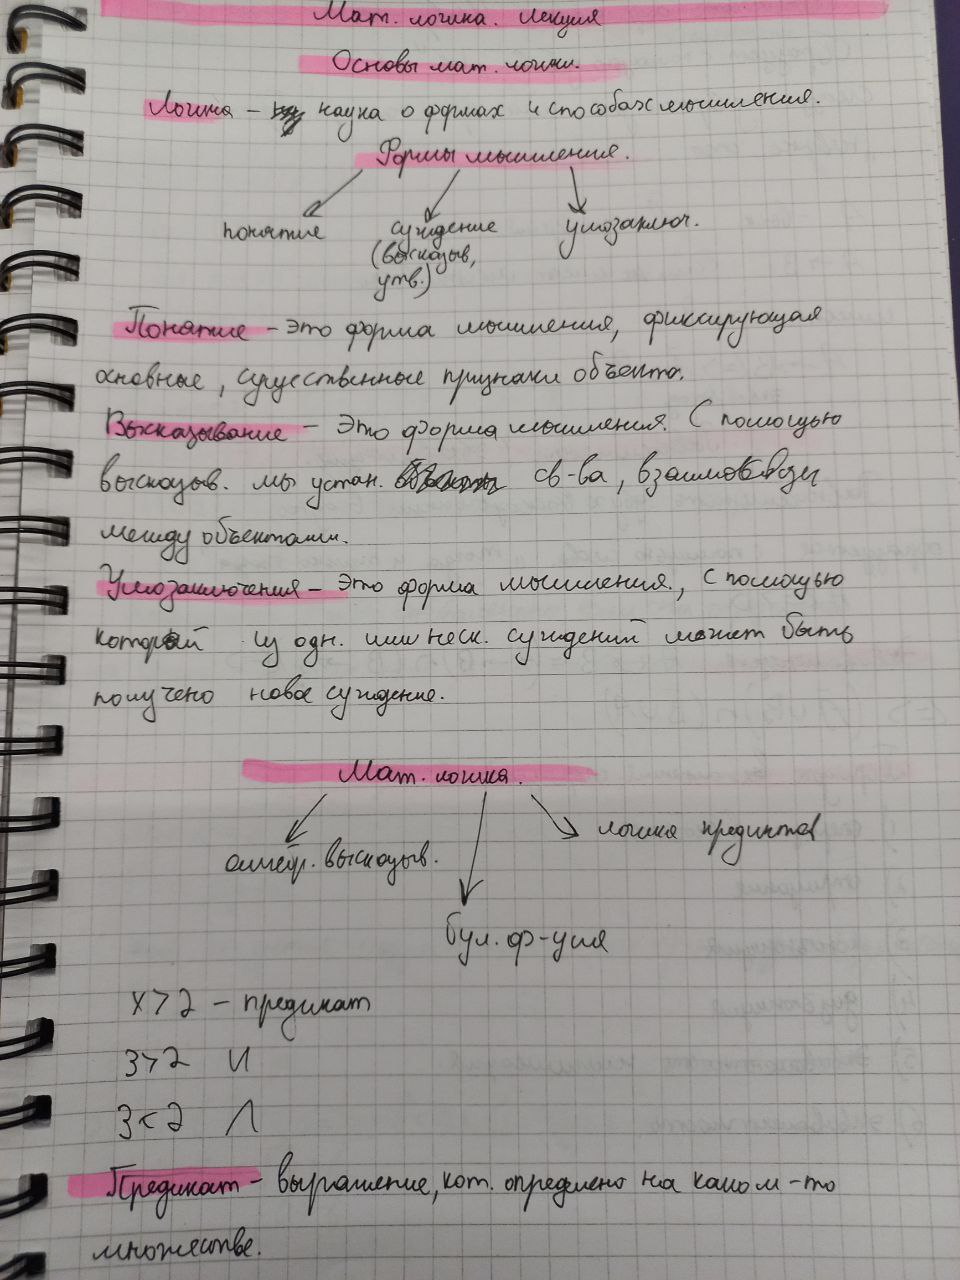 Мат. логика. Лекция
Основы мат. логики.
Логика – наука о формах и способах мышления.
Формы мышления.
понятие суждение умозаключ.
(высказыв,
утв.)
Понятие – это форма мышления, фиксирующая
основные, существенные признаки объекта.
Высказывание – это форма мышления. С помощью
высказыв. мы устан. св-ва, взаимосвязи
между объектами.
Умозаключения – это форма мышления, с помощью
которой из одн. или неск. суждений может быть
получено новое суждение.
Мат. логика.
алгебр. высказыв. логика предикатов
бул. ф-ция
x > 2 – предикат
3 > 2 И
3 < 2 Л
Предикат – выражение, кот. определено на каком-то
множестве.